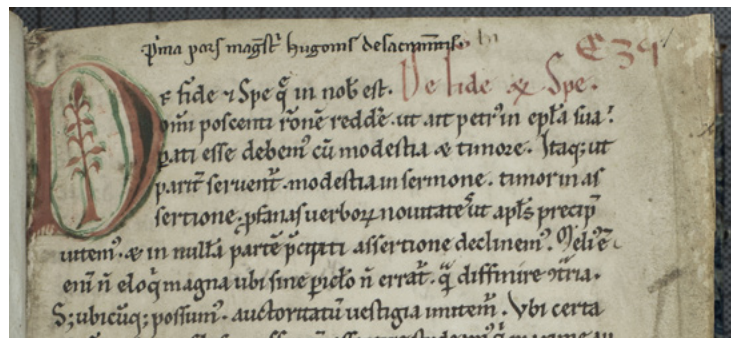 p̄ma pars magr̄i hugonis de sacram̄tis.
E 39
De fide ⁊ Spe q̄ in nob̄ est. De fide & Spe.
om̄i poscenti rōnē reddēr ut ait petrꝰ in ep̄la sua.
parati esse debemꝰ cū modestia & timore. Itaq; ut
pariť seruent̄. modestia in sermone. timor in as
sertione. ꝓfanas uerboꝝ nouitates ut apl̄s precip̄
uitemꝰ. & in nullā partē p̄cipiti assertione declinemꝰ. Meliꝰ ē
eni n̄ eloq̄ magna ubi sine pic̄lo n̄ errat̄. q̄ diffinire ↄ̄t̄ria.
S; ubicūq; possumꝰ. auctoritatū uestigia imitem̄. Vbi certa